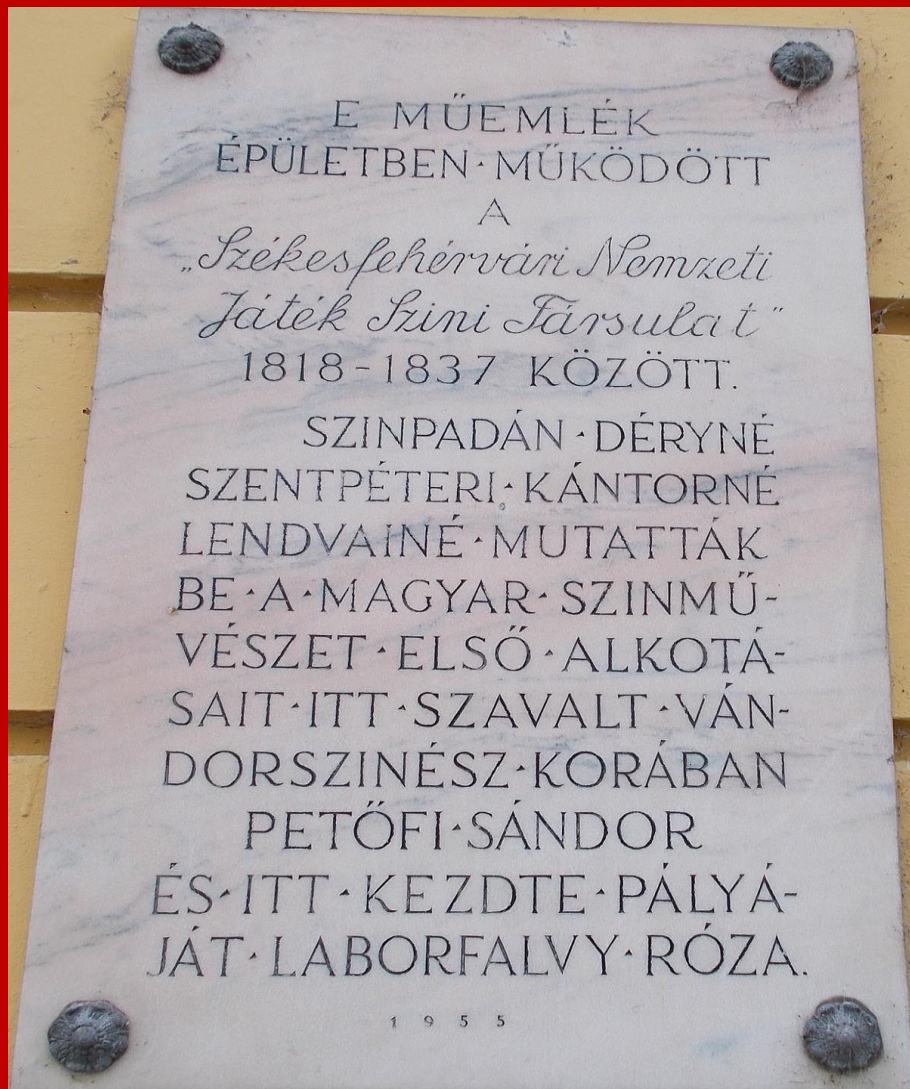 E MŰEMLÉK
ÉPÜLETBEN·MŰKÖDÖTT
A
„Székesfehérvári Nemzeti
Játék Szini Társulat”
1818-1837 KÖZÖTT.
SZINPADÁN·DÉRYNÉ
SZENTPÉTERI·KÁNTORNÉ
LENDVAINÉ·MUTATTÁK
BE·A·MAGYAR·SZINMŰ-
VÉSZET·ELSŐ·ALKOTÁ-
SAIT·ITT·SZAVALT·VÁN-
DORSZINÉSZ·KORÁBAN
PETŐFI·SÁNDOR
ÉS·ITT·KEZDTE·PÁLYÁ-
JÁT·LABORFALVY·RÓZA.
1955